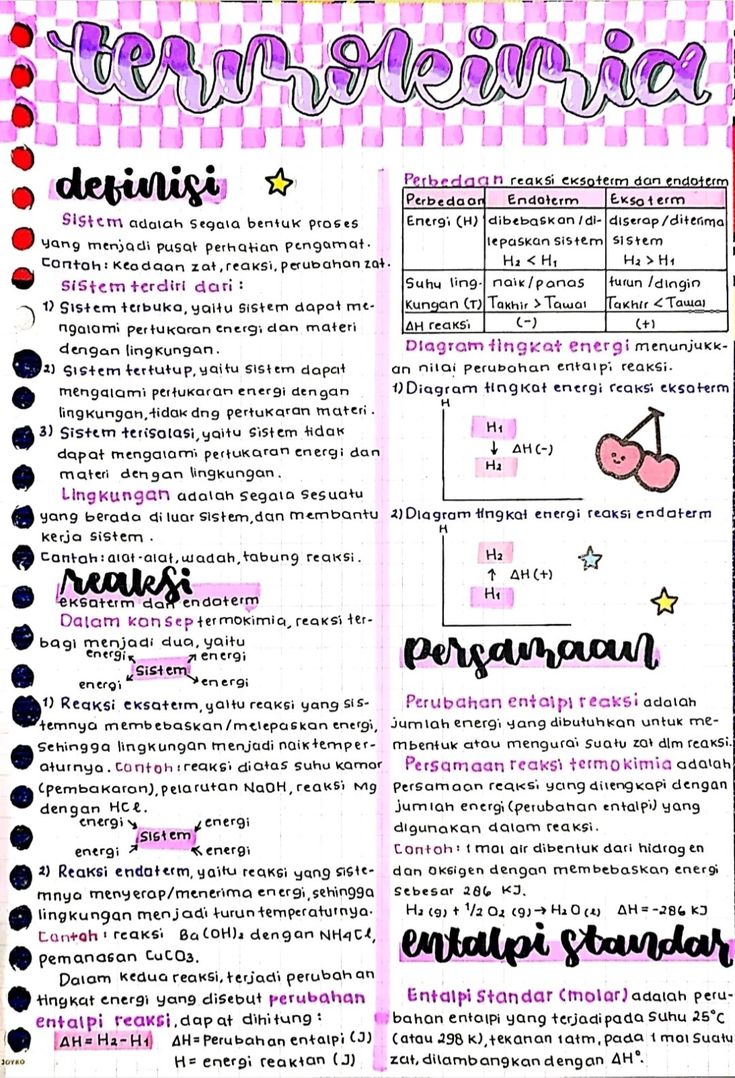 termokimia
definisi
Sistem adalah segala bentuk proses
yang menjadi pusat perhatian pengamat.
Contoh: Keadaan zat, reaksi, perubahan zat.
Sistem terdiri dari:
1) Sistem terbuka, yaitu sistem dapat me-
ngalami pertukaran energi dan materi
dengan lingkungan.
2) Sistem tertutup, yaitu sistem dapat
mengalami pertukaran energi dengan
lingkungan, tidak dng pertukaran materi.
3) Sistem terisolasi, yaitu sistem tidak
dapat mengalami pertukaran energi dan
materi dengan lingkungan.
Lingkungan adalah segala sesuatu
yang berada di luar sistem, dan membantu
kerja sistem.
Contoh: alat-alat, wadah, tabung reaksi.
reaksi
eksoterm dan endoterm
Dalam konsep termokimia, reaksi ter-
bagi menjadi dua, yaitu
energi energi
Sistem
energi energi
1) Reaksi eksoterm, yaitu reaksi yang sis-
temnya membebaskan/melepaskan energi,
sehingga lingkungan menjadi naik temper-
aturnya. Contoh: reaksi diatas suhu kamar
(pembakaran), pelarutan NaOH, reaksi Mg
dengan HCl.
energi energi
Sistem
energi energi
2) Reaksi endoterm, yaitu reaksi yang siste-
mnya menyerap/menerima energi, sehingga
lingkungan menjadi turun temperaturnya.
Contoh: reaksi Ba(OH)₂ dengan NH4Cl,
pemanasan CuCO3.
Dalam kedua reaksi, terjadi perubahan
tingkat energi yang disebut perubahan
entalpi reaksi, dapat dihitung:
ΔH = H2 - H1 ΔH = Perubahan entalpi (J)
H = energi reaktan (J)
JOYKO
Perbedaan reaksi eksoterm dan endoterm
Perbedaan Endoterm Eksoterm
Energi (H) dibebaskan/di- diserap/diterima
lepaskan sistem sistem
H2 < H1 H2 > H1
Suhu ling- naik/panas turun/dingin
kungan (T) Takhir > Tawal Takhir < Tawal
ΔH reaksi (-) (+)
Diagram tingkat energi menunjukk-
an nilai perubahan entalpi reaksi.
1) Diagram tingkat energi reaksi eksoterm
H
H1
↓ ΔH (-)
H2
2) Diagram tingkat energi reaksi endoterm
H
H2
↑ ΔH (+)
H1
persamaan
Perubahan entalpi reaksi adalah
jumlah energi yang dibutuhkan untuk me-
mbentuk atau mengurai suatu zat dlm reaksi.
Persamaan reaksi termokimia adalah
persamaan reaksi yang dilengkapi dengan
jumlah energi (perubahan entalpi) yang
digunakan dalam reaksi.
Contoh: 1 mol air dibentuk dari hidrogen
dan oksigen dengan membebaskan energi
sebesar 286 KJ.
H₂ (g) + 1/2 O₂ (g) → H₂O (l) ΔH = -286 KJ
entalpi standar
Entalpi Standar (molar) adalah peru-
bahan entalpi yang terjadi pada suhu 25°C
(atau 298 K), tekanan 1 atm, pada 1 mol suatu
zat, dilambangkan dengan ΔH°.